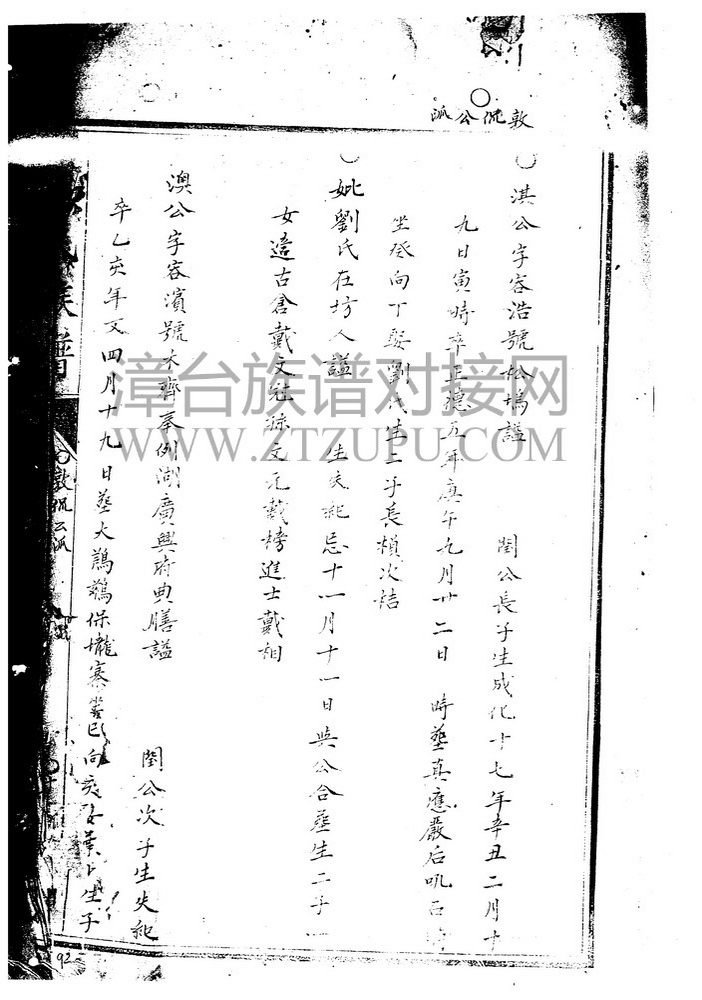 敦侃公派
淇公字容浩號松塢謚 閏公長子生成化十七年辛丑二月十
九日寅時卒正德五年庚午九月廿二日 時塟真應嚴后吼石
坐癸向丁娶劉氏生二子長楨次秸
妣劉氏在坊人謚 生失紀忌十一月十一日與公合塟生二子一
女適古倉戴文 孫文元戴榜進士戴相
澳公字容濱號木齊奉例湖廣興府典膳謚 閏公次子生失紀
卒乙亥年又四月十九日塟大鷄鵝保壠寨 巳向亥 葉氏生子
族譜
敦侃公派
漳台族谱对接网
WWW.ZTZUPU.COM
92